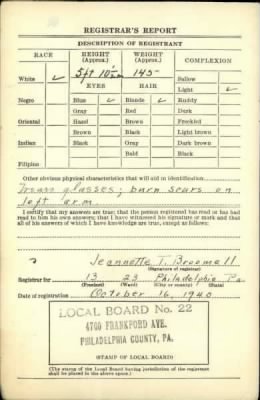 REGISTRAR'S REPORT
DESCRIPTION OF REGISTRANT
RACE HEIGHT (Approx.) WEIGHT (Approx.) COMPLEXION
White ✓ 5ft 10½in 145- Sallow
EYES HAIR Light ✓
Negro Blue ✓ Blonde ✓ Ruddy
Gray Red Dark
Oriental Hazel Brown Freckled
Brown Black Light brown
Indian Black Gray Dark brown
Bald Black
Filipino
Other obvious physical characteristics that will aid in identification
Wears glasses; burn scars on
left arm
I certify that my answers are true; that the person registered has read or has had
read to him his own answers; that I have witnessed his signature or mark and that
all of his answers of which I have knowledge are true, except as follows:
Jeannette T. Broomall
(Signature of registrar)
Registrar for 13 23 Philadelphia Pa.
(Precinct) (Ward) (City or county) (State)
Date of registration October 16, 1940
LOCAL BOARD No. 22
4700 FRANKFORD AVE.
PHILADELPHIA COUNTY, PA.
(STAMP OF LOCAL BOARD)
(The stamp of the Local Board having jurisdiction of the registrant
shall be placed in the above space.)